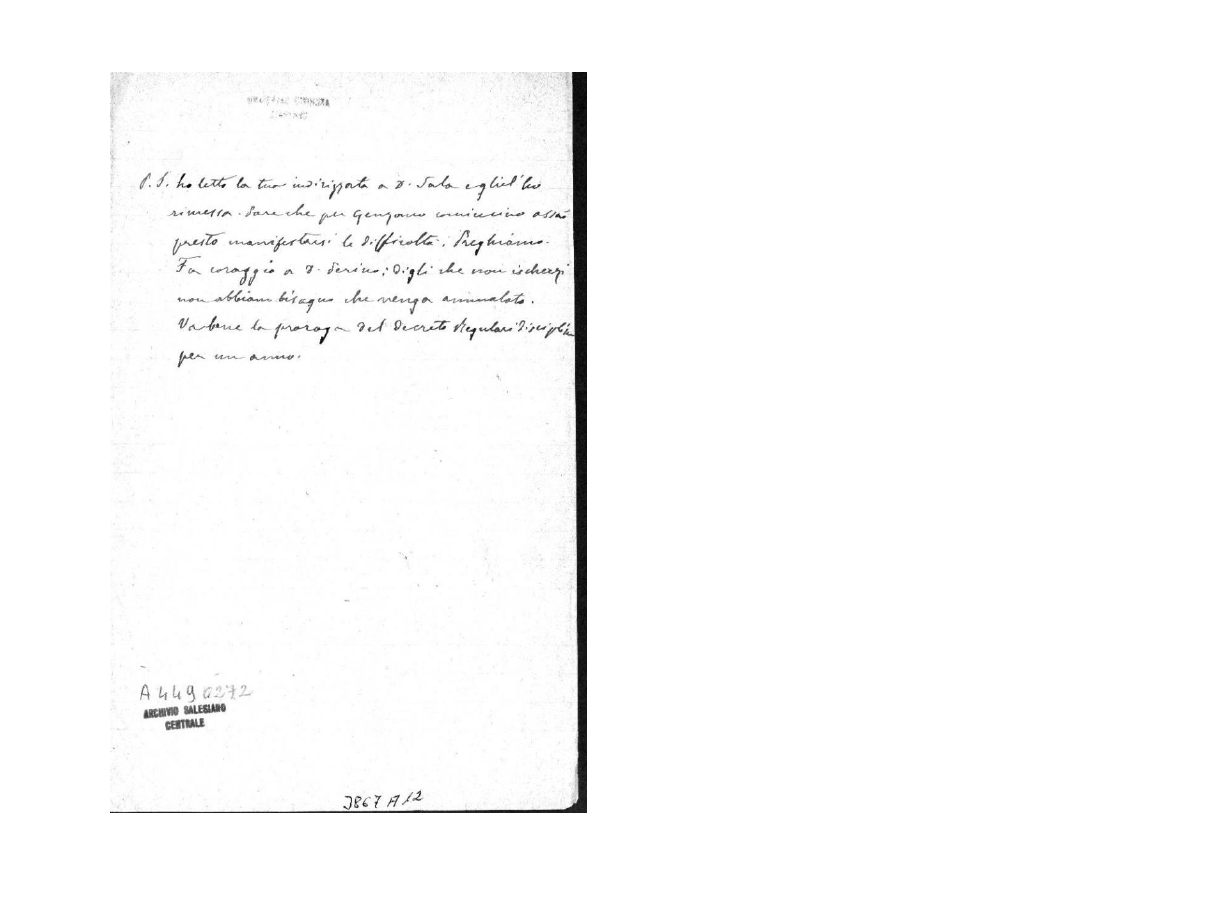 P. S. ho letto la tua indirizzata a D. Sala e gliel'ho
rimessa. Pare che per Genzano comincino assai
presto manifestarsi le difficoltà. Preghiamo.
Fa coraggio a D. Serino; digli che non ischerzi
non abbiam bisogno che venga ammalato.
Va bene la proroga del Decreto Regulari Disciplinæ
per un anno.
A 4490272
ARCHIVIO SALESIANO
CENTRALE
3867 A12